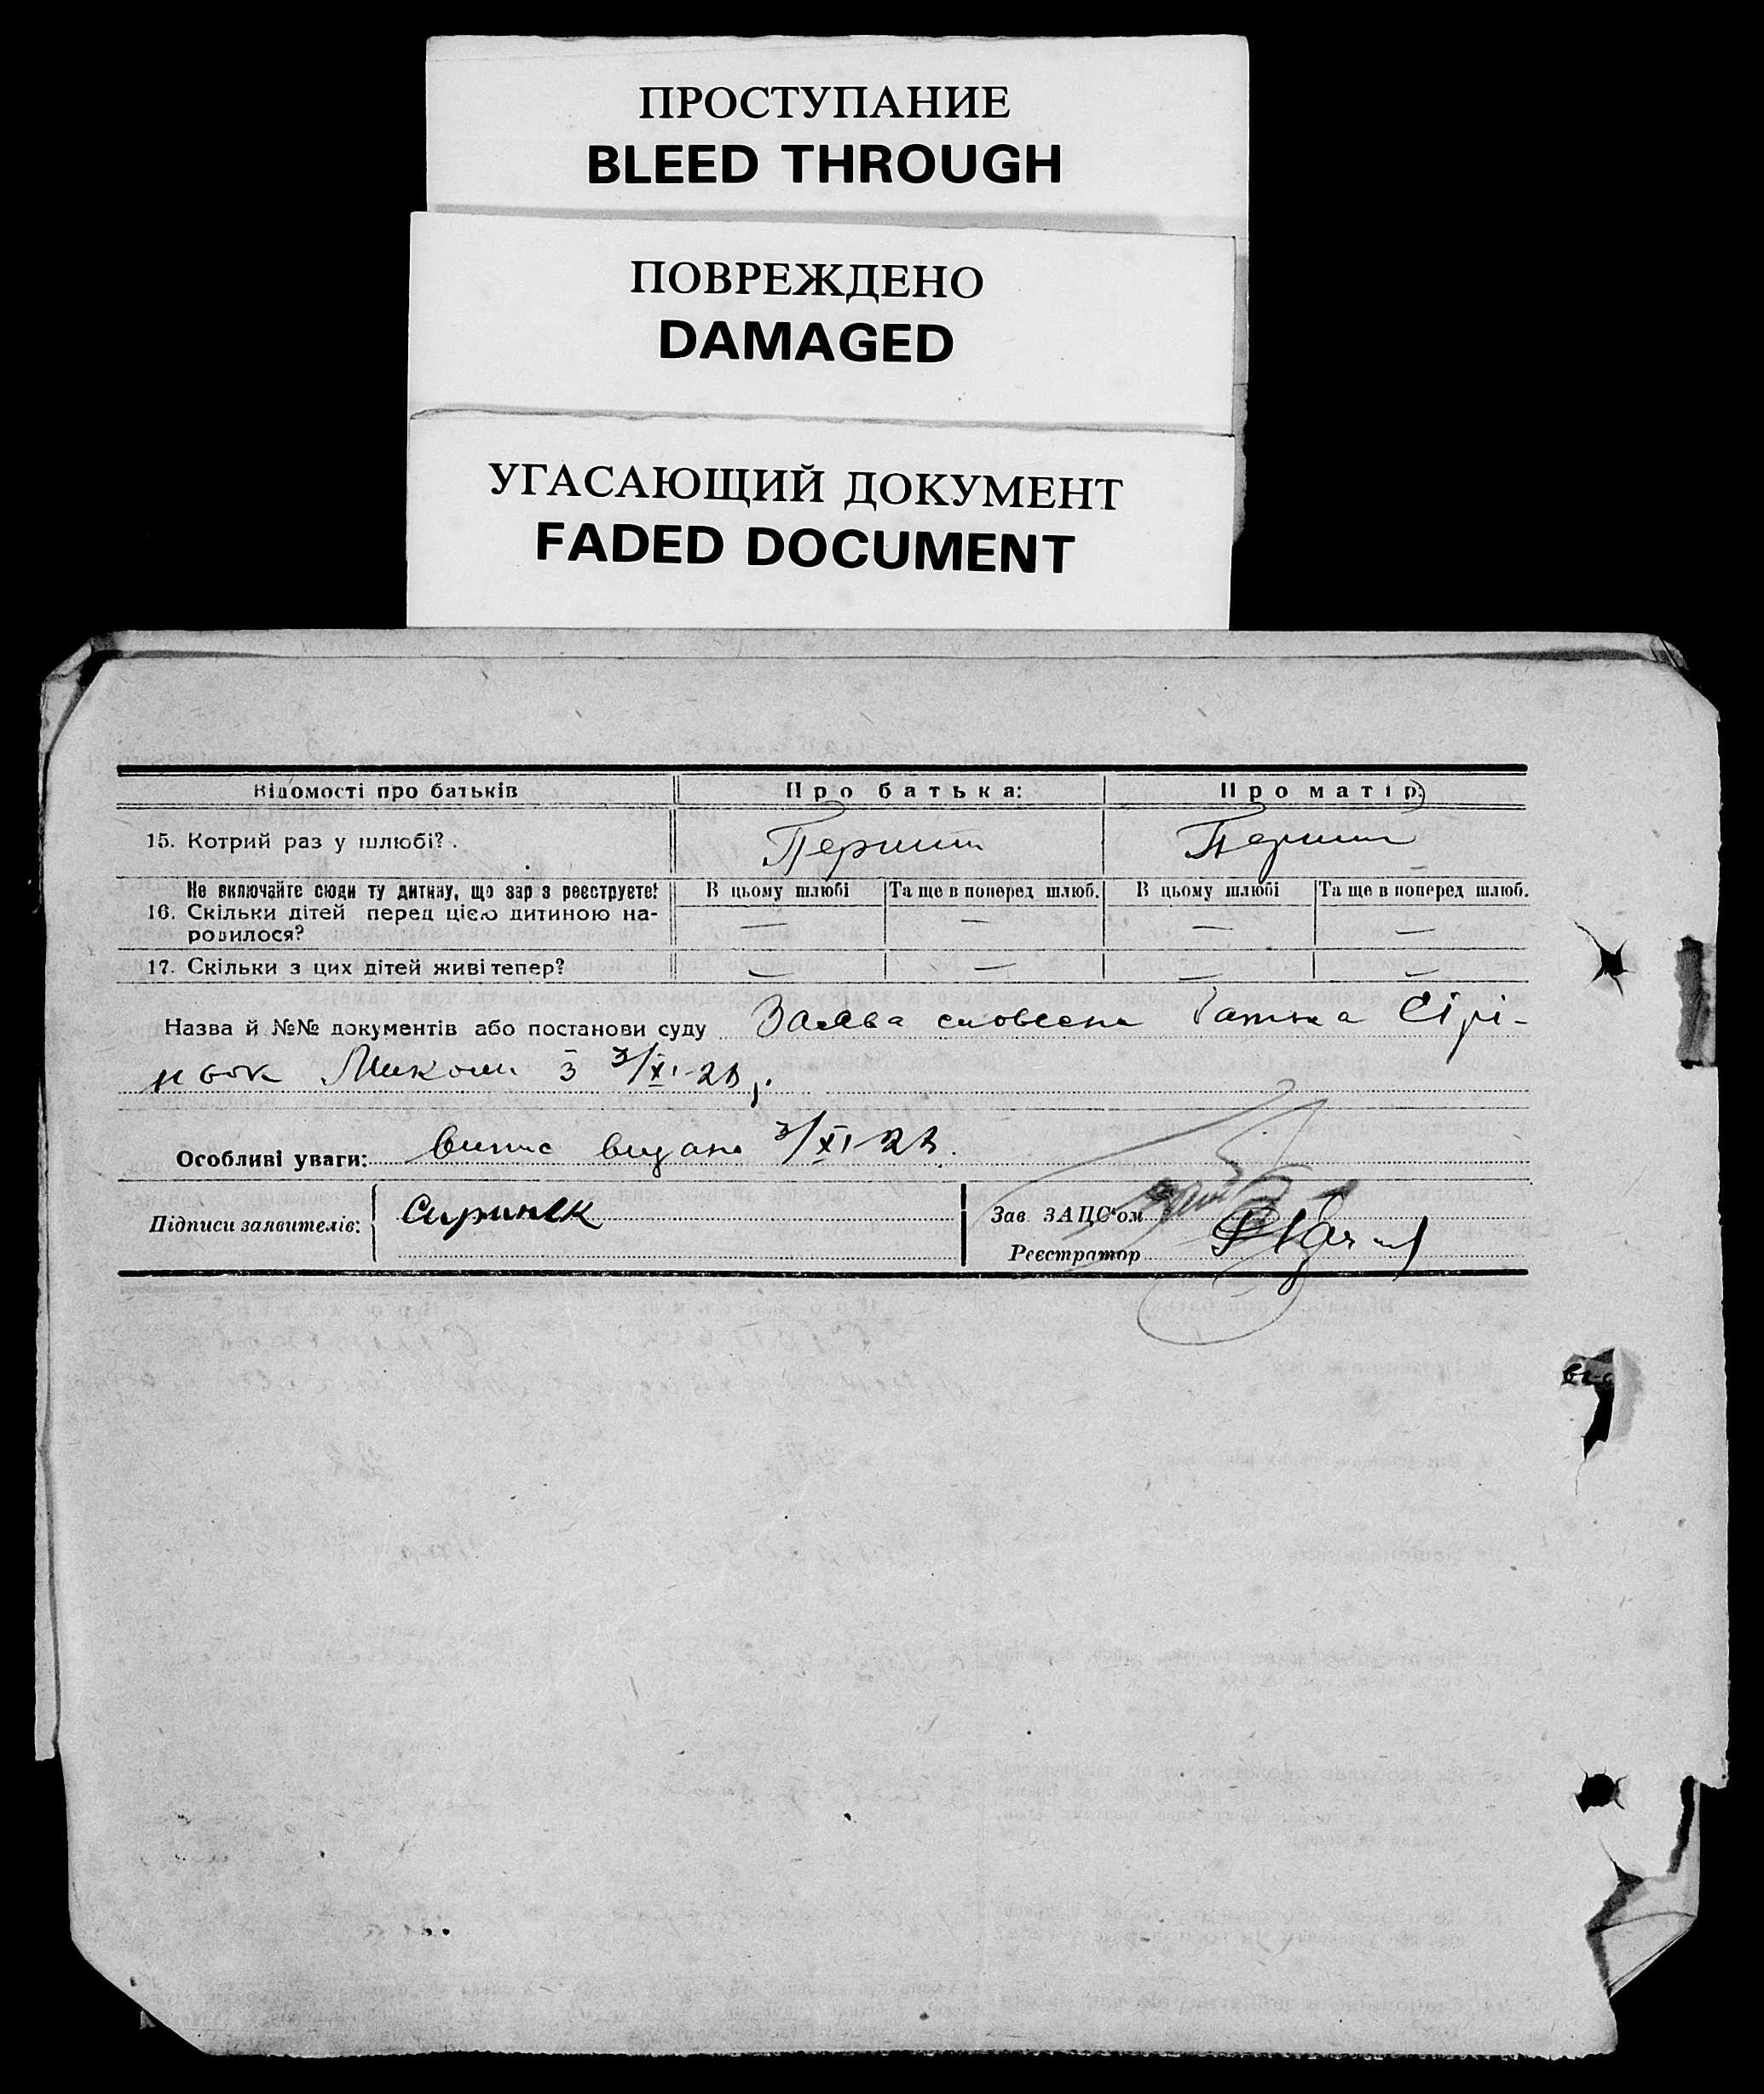 ПРОСТУПАНИЕ
BLEED THROUGH
ПОВРЕЖДЕНО
DAMAGED
УГАСАЮЩИЙ ДОКУМЕНТ
FADED DOCUMENT
Відомості про батьків Про батька: Про матір:
15. Котрий раз у шлюбі? Перший Перший
Не включайте сюди ту дитину, що зараз реєструєте! В цьому шлюбі Та ще в поперед шлюб. В цьому шлюбі Та ще в поперед шлюб.
16. Скільки дітей перед цією дитиною на- — — — —
родилося?
17. Скільки з цих дітей живі тепер? — — — —
Назва й №№ документів або постанови суду Заява словесна батька Сірі-
Миколи з 3/XI-28
Особливі уваги: Витяг видано 3/XI-28.
Підписи заявителів: Сиринек Зав ЗАЦС'ом
Реєстратор